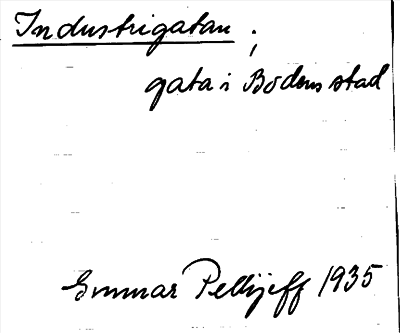 Industrigatan ;
gata i Bodens stad
Gunnar Pellijeff 1935